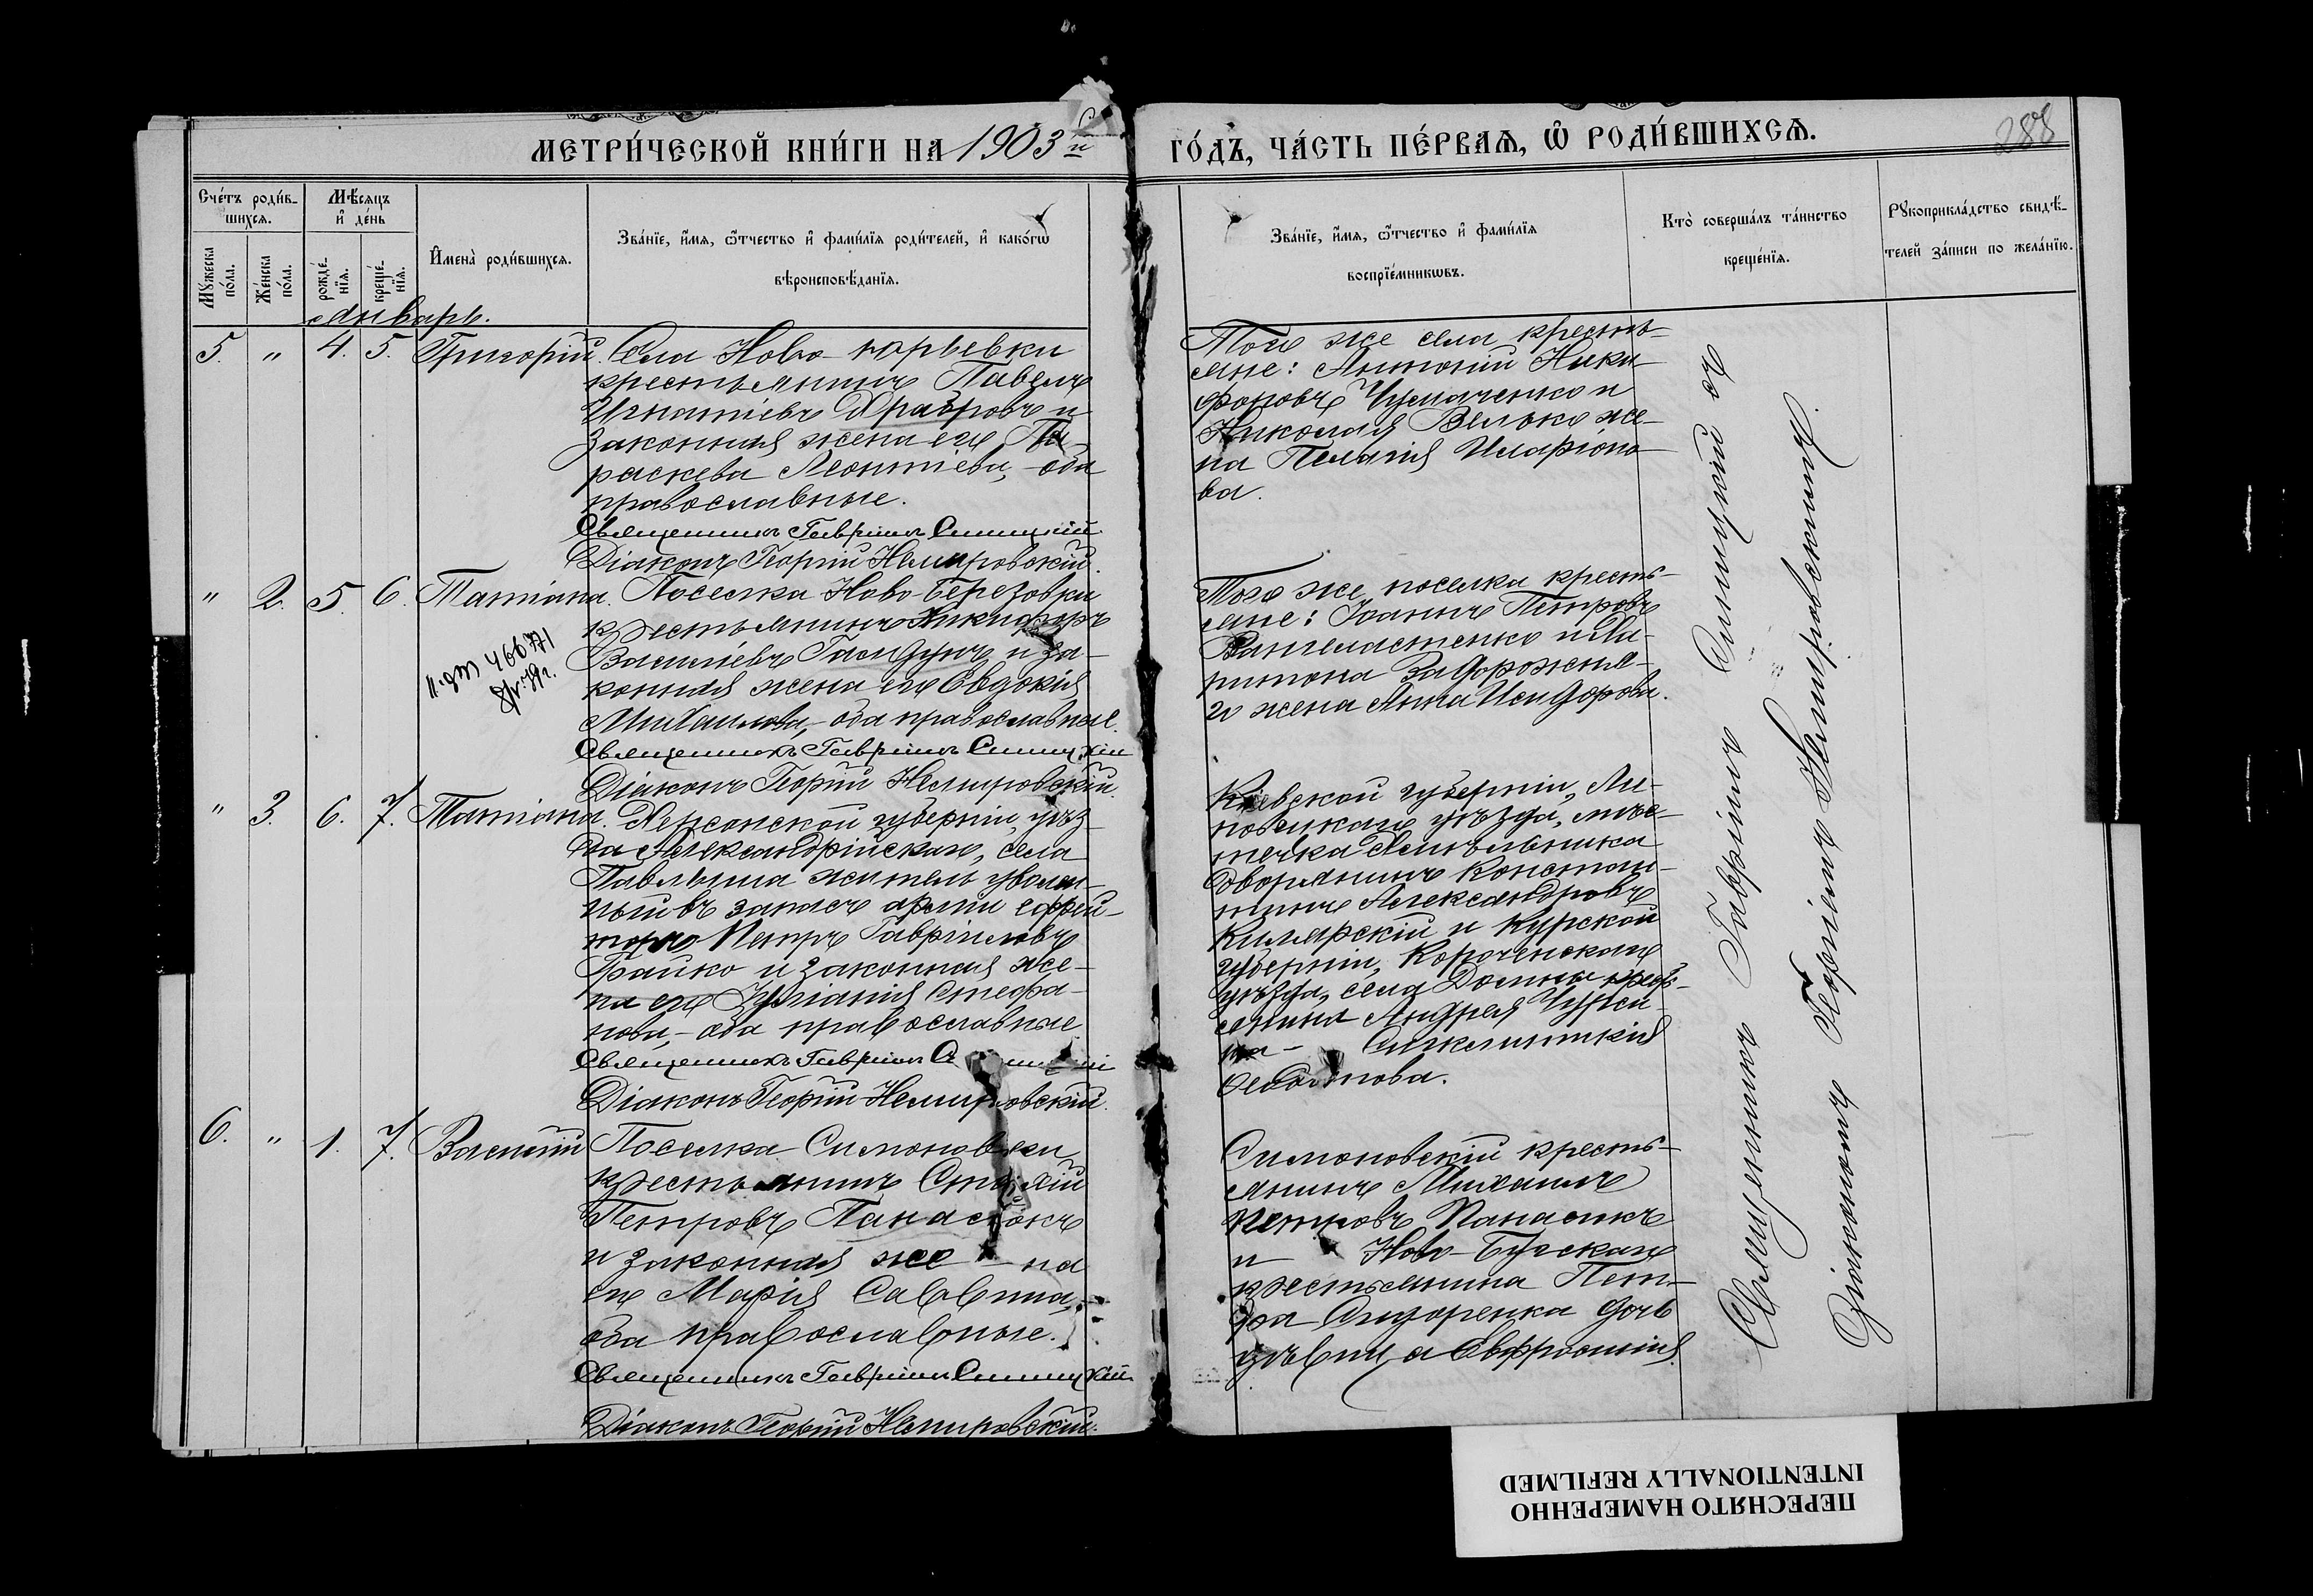 МЕТРИ́ЧЕСКОЙ КНИ́ГИ НА 1903 й
ГО́ДЪ, ЧА́СТЬ ПЕ́РВАЯ, Ѡ РОДИ́ВШИХСЯ.
288
Сче́тъ роди́в-
шихся.
Мѣ́сяцъ
и҆ де́нь
Мꙋжеска
по́ла.
Же́нска
по́ла.
рожде́-
нїя.
креще́-
нїя.
И҆мена̀ роди́вшихся.
Зва́нїе, и҆́мя, ѻ҆́тчество и҆ фами́лїя роди́телей, и҆ како́гѡ
вѣроисповѣ́данїя.
Зва́нїе, и҆́мя, ѻ҆́тчество и҆ фами́лїя
воспрїе́мникѡвъ.
Кто̀ соверша́лъ та́инство
креще́нїя.
Рꙋкоприкла́дство свидѣ́-
телей за́писи по жела́нїю.
Январь.
5. " 4. 5. Григорій.
Села Ново-юрьевки
крестьянинъ Павелъ
Игнатіевъ Храбровъ и
законная жена его Па-
раскева Леонтіева, - оба
православные.
Священникъ Гавріилъ Синицкій
Діаконъ Георгій Немировскій.
Того же села крестья-
яне: Антоній Ники-
форовъ Чумаченко и
Николая Велько же-
на Пелагія Иларіоно-
ва.
" 2. 5. 6. Татіана.
Поселка Ново-Березовки
крестьянинъ Никифоръ
Василіевъ Галдунъ и за-
конная жена его Евдокія
Михаилова, - оба православные.
Священникъ Гавріилъ Синицкій
Діаконъ Георгій Немировскій.
Того же поселка кресть-
яне: Іоаннъ Петровъ
и Ха-
ритона Задорожня-
го жена Анна Исидорова.
" 3. 6. 7. Татіана.
Херсонской губерніи, уѣз-
да Александрійскаго, села
Павлыша житель уволен-
ный въ запасъ арміи ефрей-
торъ Петръ Гавріиловъ
Грайко и законная же-
на его Іуліанія Стефа-
нова, - оба православные
Священникъ Гавріилъ Синицкій
Діаконъ Георгій Немировскій.
Кіевской губерніи, Ли-
повецкаго уѣзда, мѣс-
течка
дворянинъ Констан-
тинъ Александровъ
и Курской
губерніи, Короченскаго
уѣзда, села
Андрея
Синклитикія
6. " 1. 7. Василій
Поселка Симоновки
крестьянинъ
Петровъ Панасюкъ
и законная же - на
его Марія Саввина,
оба православные.
Священникъ Гавріилъ Синицкій
Діаконъ Георгій Немировскій.
Симоновскій кресть-
янинъ Михаилъ
Петровъ Панасюкъ
и Ново-Бугскаго
крестьянина Пет-
ра Сидоренка дочь
дѣвица Евфросинія.
Священникъ Гавріилъ Синицкій съ
Діакономъ Георгіемъ Немировскимъ.
ПЕРЕСНЯТО НАМЕРЕННО
INTENTIONALLY REFILMED